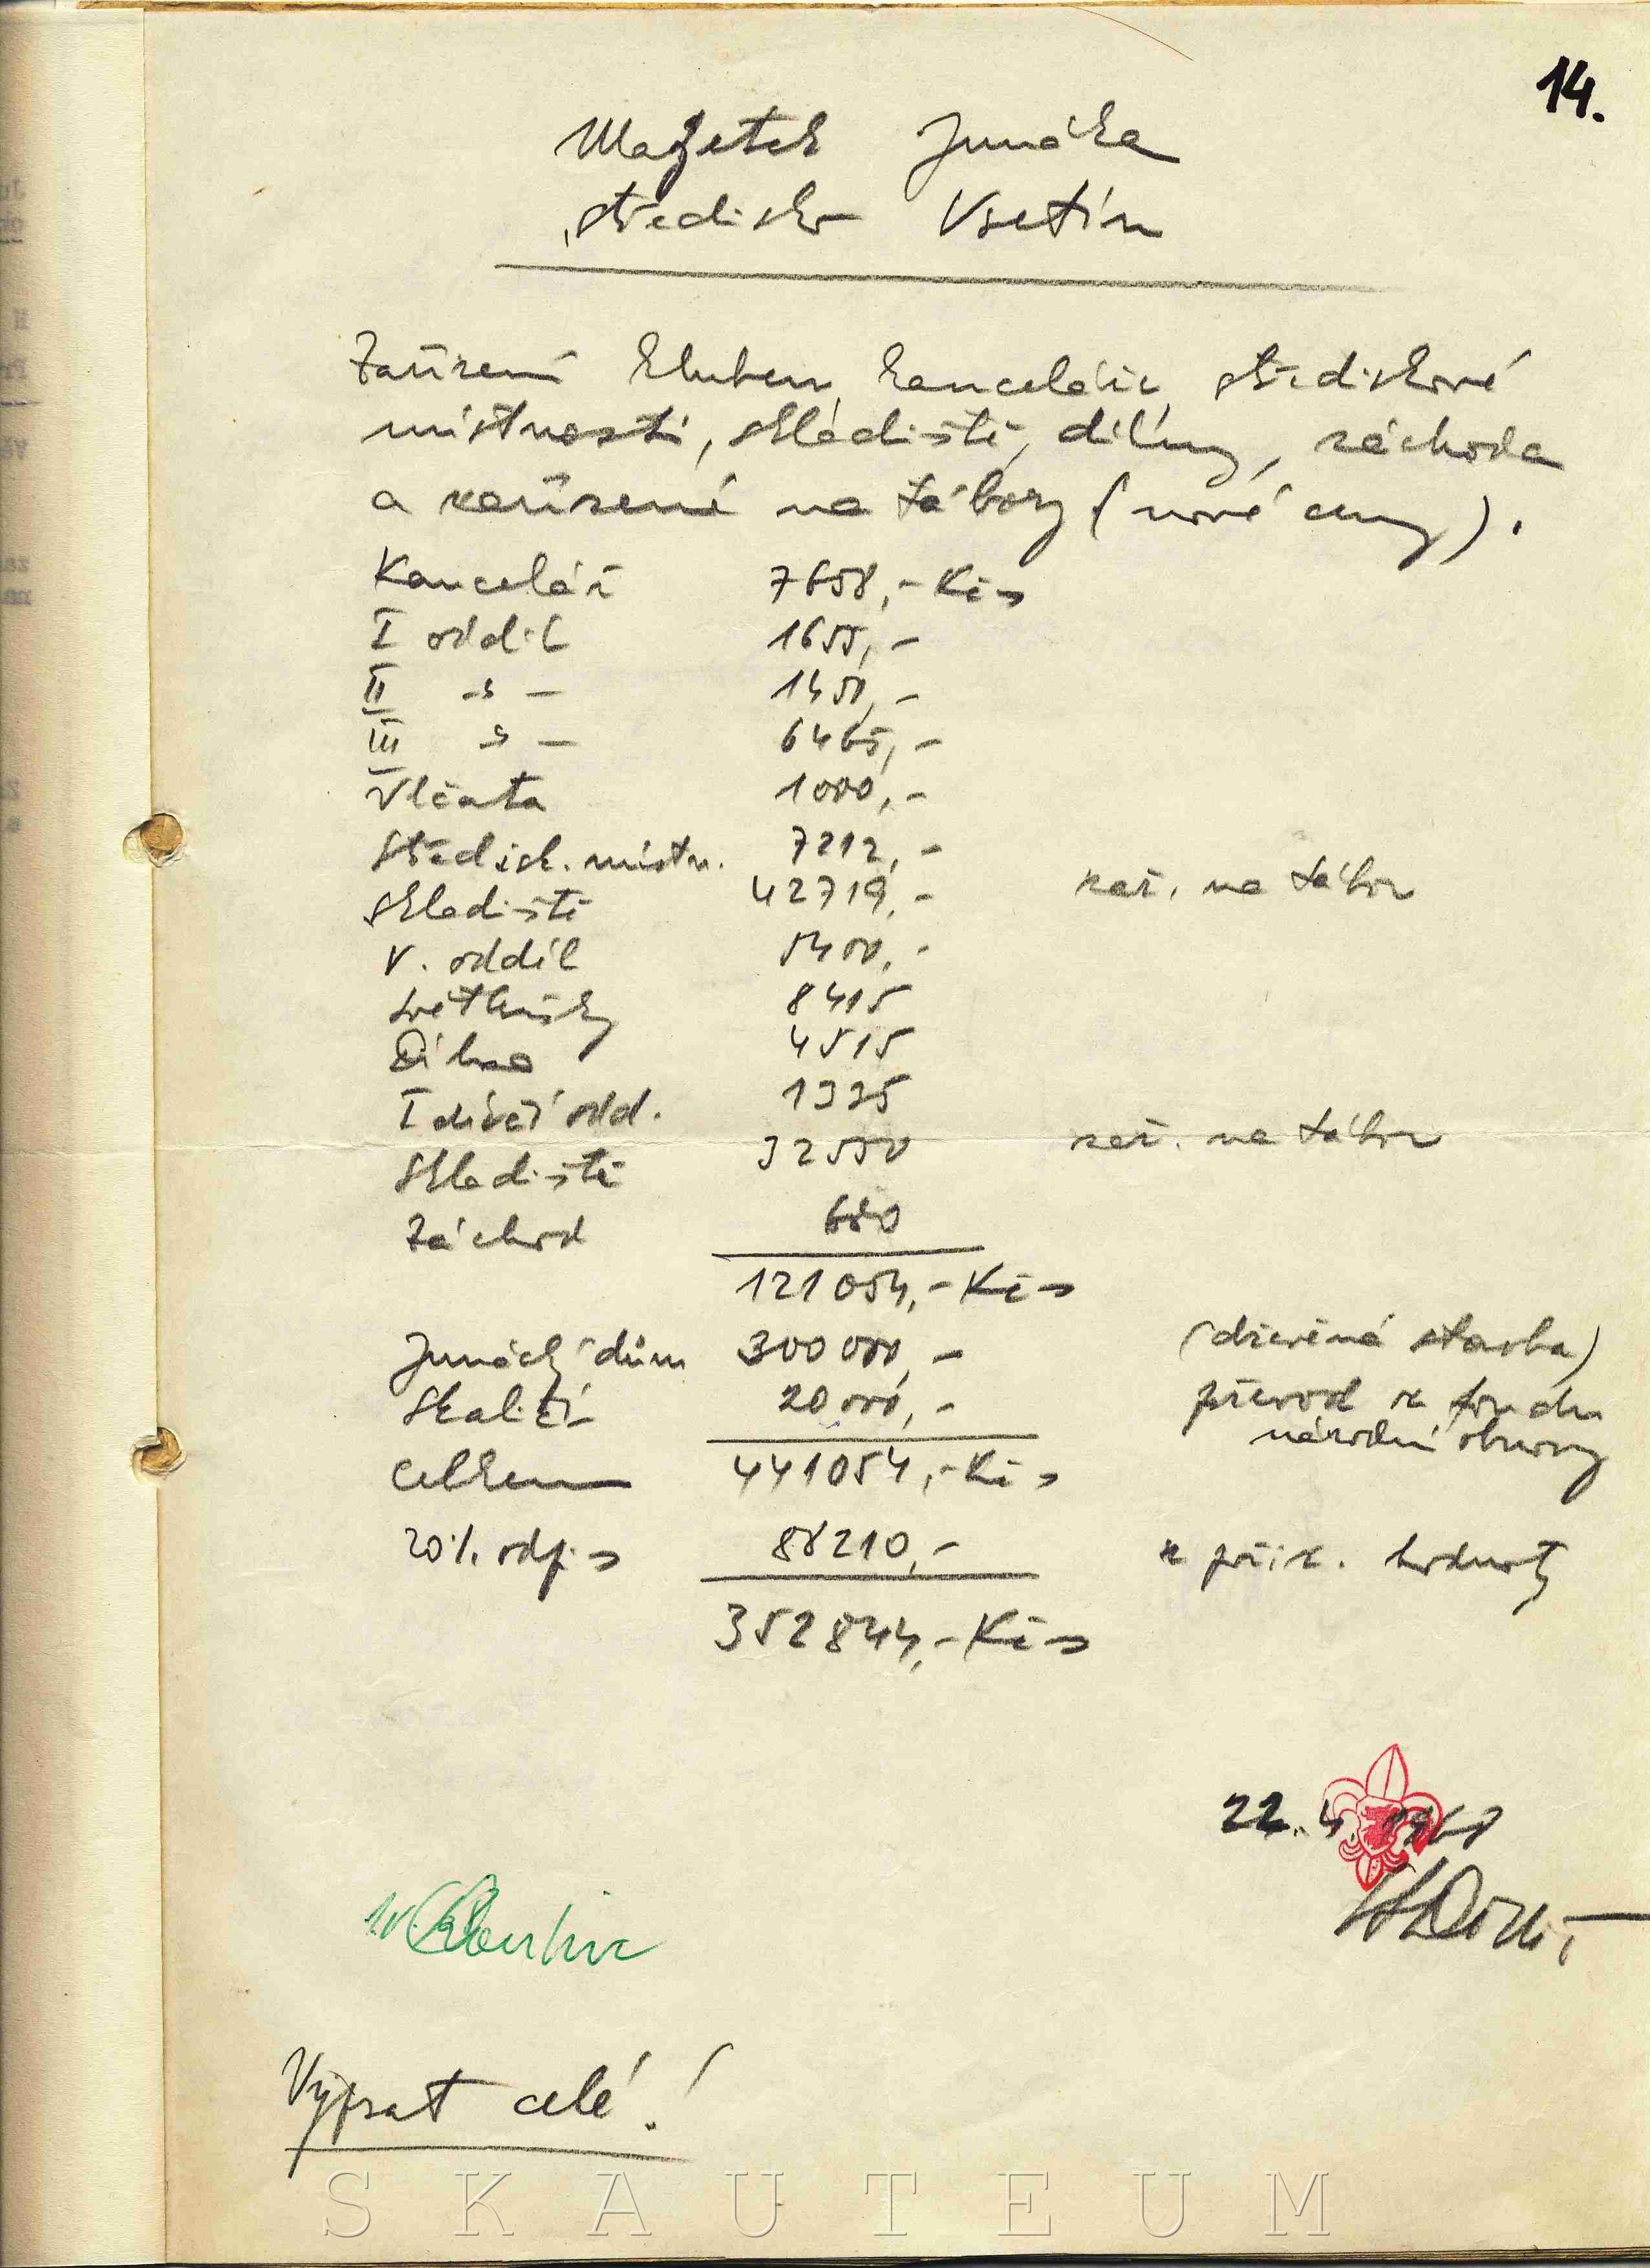 14.
Majetek Junáka
středisko Vsetín
Zařízení kluben, kanceláře, střediskové
místnosti, skladiště, dílny, záchoda
a zařízení na tábory (nové ceny).
Kancelář 7658,- Kčs
I oddíl 1655,-
II -"- 1450,-
III -"- 6465,-
Vlčata 1000,-
Středisk. místn. 7212,-
Skladiště 42719,- zař. na tábor
V. oddíl 5400,-
Světlušky 8415
Dílna 4515
I dívčí odd. 1335
Skladiště 32550 zař. na tábor
Záchod 680
121054,- Kčs
Junácký dům 300000,- (dřevěná stavba)
Skaličí 20000,- převod z fondu
národní obnovy
Celkem 441054,- Kčs
20% odpis 88210,- z poříz. hodnoty
352844,- Kčs
22. 4. 1968
Vypsat celé!
SKAUTEUM